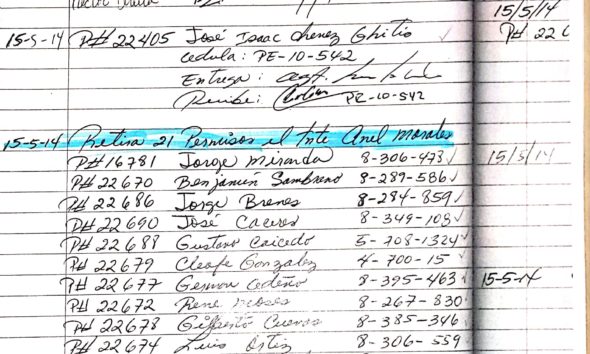 15/5/14
15-5-14 P# 22405 José Isaac Chenez Ghitis P# 22
Cedula: PE-10-542
Entrega:
Recibe: PE-10-542
15-5-14 Retira 21 Permisos el Tnte Anel Morales
P# 16781 Jorge Miranda 8-306-473 15/5/14
P# 22670 Benjamin Sambrano 8-289-586
P# 22686 Jorge Brenes 8-284-859
P# 22690 José Caceres 8-349-108
P# 22688 Gustavo Caicedo 5-708-1324
P# 22679 Cleafe Gonzalez 4-700-15
P# 22677 Cedeño 8-395-463 15-5-14
P# 22672 Rene 8-267-830
P# 22678 Gilberto Cuevas 8-385-346
P# 22674 Luis Ortiz 8-306-559